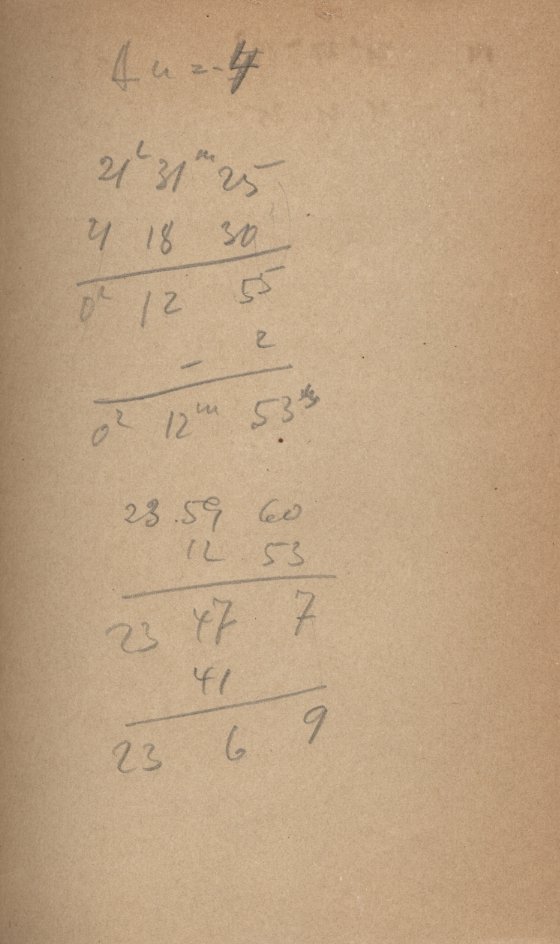 Δu = -4
21ʰ 31ᵐ 25
21 18 30
0ʰ 12 55
- 2
0ʰ 12ᵐ 53ˢ
23 59 60
12 53
23 47 7
41
23 6 9